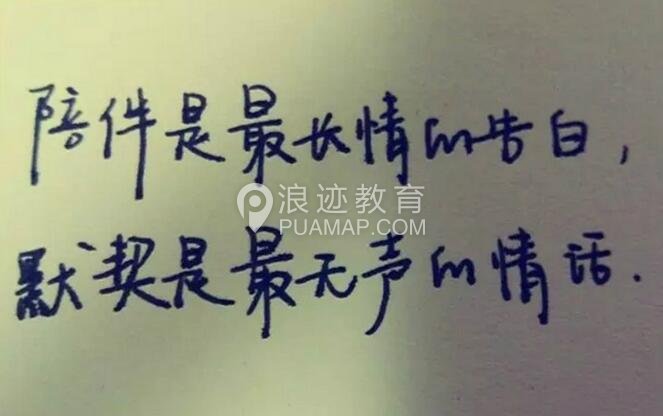 陪伴是最长情的告白,
浪迹教育
PUAMAP.COM
默契是最无声的情话.